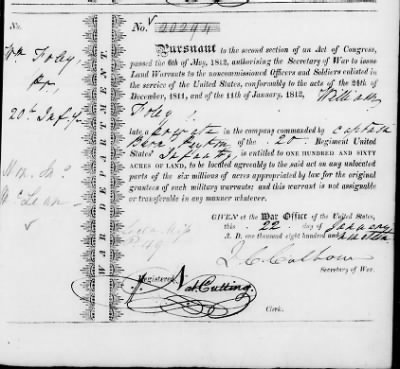 No.
No. 20294
Wm Foley,
Pr,
20th Inf'y
Wm. Mc
McLean
WAR DEPARTMENT.
Pursuant to the second section of an Act of Congress,
passed the 6th of May, 1812, authorising the Secretary of War to issue
Land Warrants to the noncommissioned Officers and Soldiers enlisted
in the service of the United States, conformably to the acts of the 24th of
December, 1811, and of the 11th of January, 1812, William
Foley
late a private in the company commanded by Captain
Peyton of the 20 Regiment United
States' Infantry, is entitled to ONE HUNDRED AND SIXTY
ACRES OF LAND, to be located agreeably to the said act on any unlocated
parts of the six millions of acres appropriated by law for the original
grantees of such military warrants; and this warrant is not assignable
or transferable in any manner whatever.
GIVEN at the War Office of the United States,
this 22 day of January
A. D. one thousand eight hundred and nineteen
J. C. Calhoun
Secretary of War.
Registered
Nat Cutting.
Clerk.